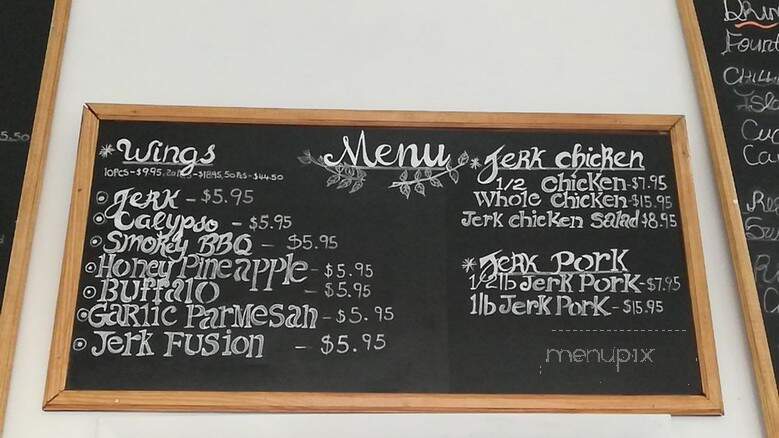 Menu
*Wings
10pcs-$9.95, 20pcs-$18.95, 50pcs-$44.50
Jerk - $5.95
Calypso - $5.95
Smokey BBQ - $5.95
Honey Pineapple - $5.95
Buffalo - $5.95
Garlic Parmesan - $5.95
Jerk Fusion - $5.95
*Jerk chicken
1/2 chicken-$7.95
Whole chicken-$15.95
Jerk chicken Salad $8.95
*Jerk Pork
1/2lb Jerk Pork-$7.95
1lb Jerk Pork-$15.95
menupix
5.50